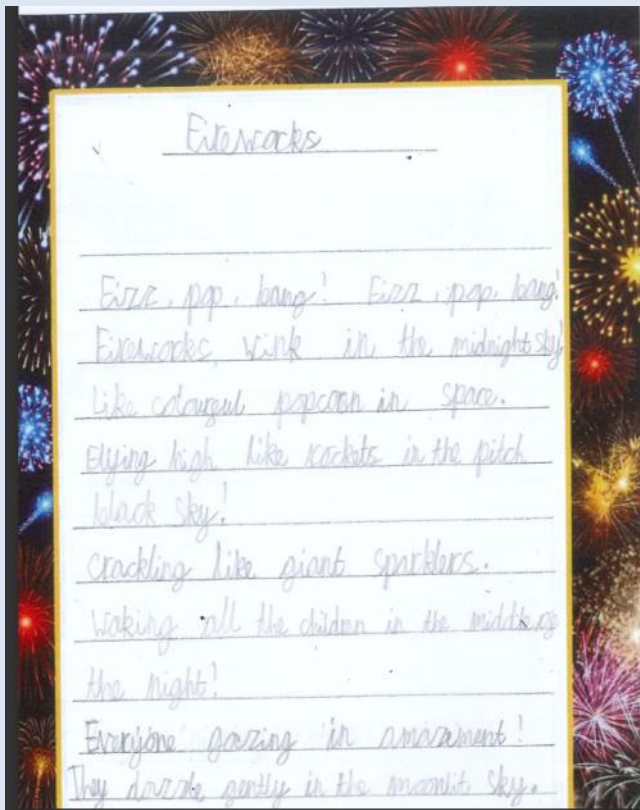 Fireworks
Fizz, pop, bang! Fizz, pop, bang!
Fireworks wink in the midnight sky
Like colourful popcorn in space.
Flying high like rockets in the pitch
black sky!
Crackling like giant sparklers.
Waking all the children in the middle of
the night!
Everyone gazing in amazement!
They dazzle gently in the moonlit sky.